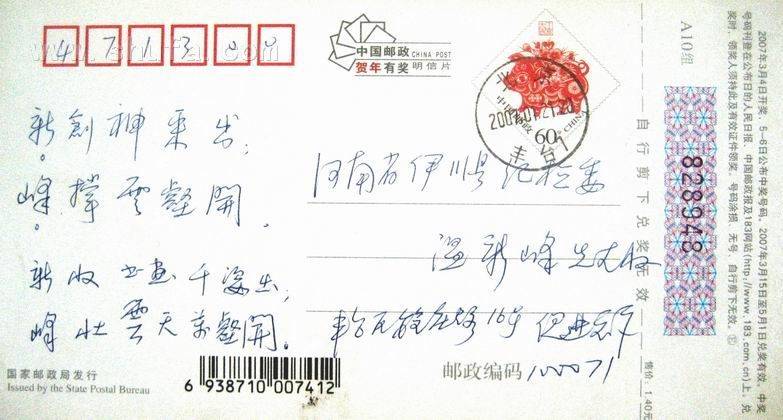 471300
中国邮政 CHINA POST
贺年有奖 明信片
北京
2007.01.21.20
60
丰台
新創神来出;
峰撑雲壑開。
新收书画千姿出;
峰壮雲天万壑開。
河南省伊川县纪检委
温新峰先生收
丰台
16号
邮政编码 100071
国家邮政局发行
Issued by the State Postal Bureau
6 938710 007412
售价:1.40元
自行剪下兑奖无效
A10组
828948
2007年3月4日开奖,5-6日公布中奖号码。2007年3月15日至5月1日兑奖有效。中奖
号码刊登在公布日的人民日报、中国邮政报及183网站(http://www.183.com.cn)上。兑
奖时,领奖人须持此及有效证件领奖。号码涂损、无号、自行剪下无效。